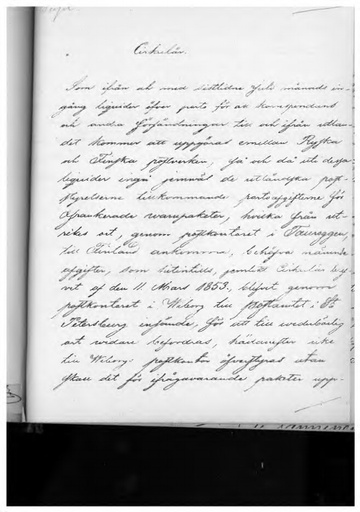 Cirkulär.
Som ifrån och med sistlidne Juli månads in-
gång liquider öfver porto för all korrespondens
och andra försändningar till och ifrån utlan-
det kommer att uppgöras emellan Ryska
och Finska postverken, så och då uti dessa
liquider ingå jemväl de utländska post-
styrelserne tillkommande portoafgifterne för
ofrankerade varupaketer, hvilka från ut-
rikes ort, genom postkontoret i Tauroggen,
till Finland ankomma, behöfva nämnde
afgifter, som hittintills, jemlikt Cirkulär bref-
vet af den 11 Mars 1853, blifvit genom
postkontoret i Wiborg till Postamtet i St
Petersburg insände, för att till vederbörlig
ort vidare befordras, hädanefter icke
till Wiborgs postkontor öfverflyttas utan
skall det för ifrågavarande paketer upp-